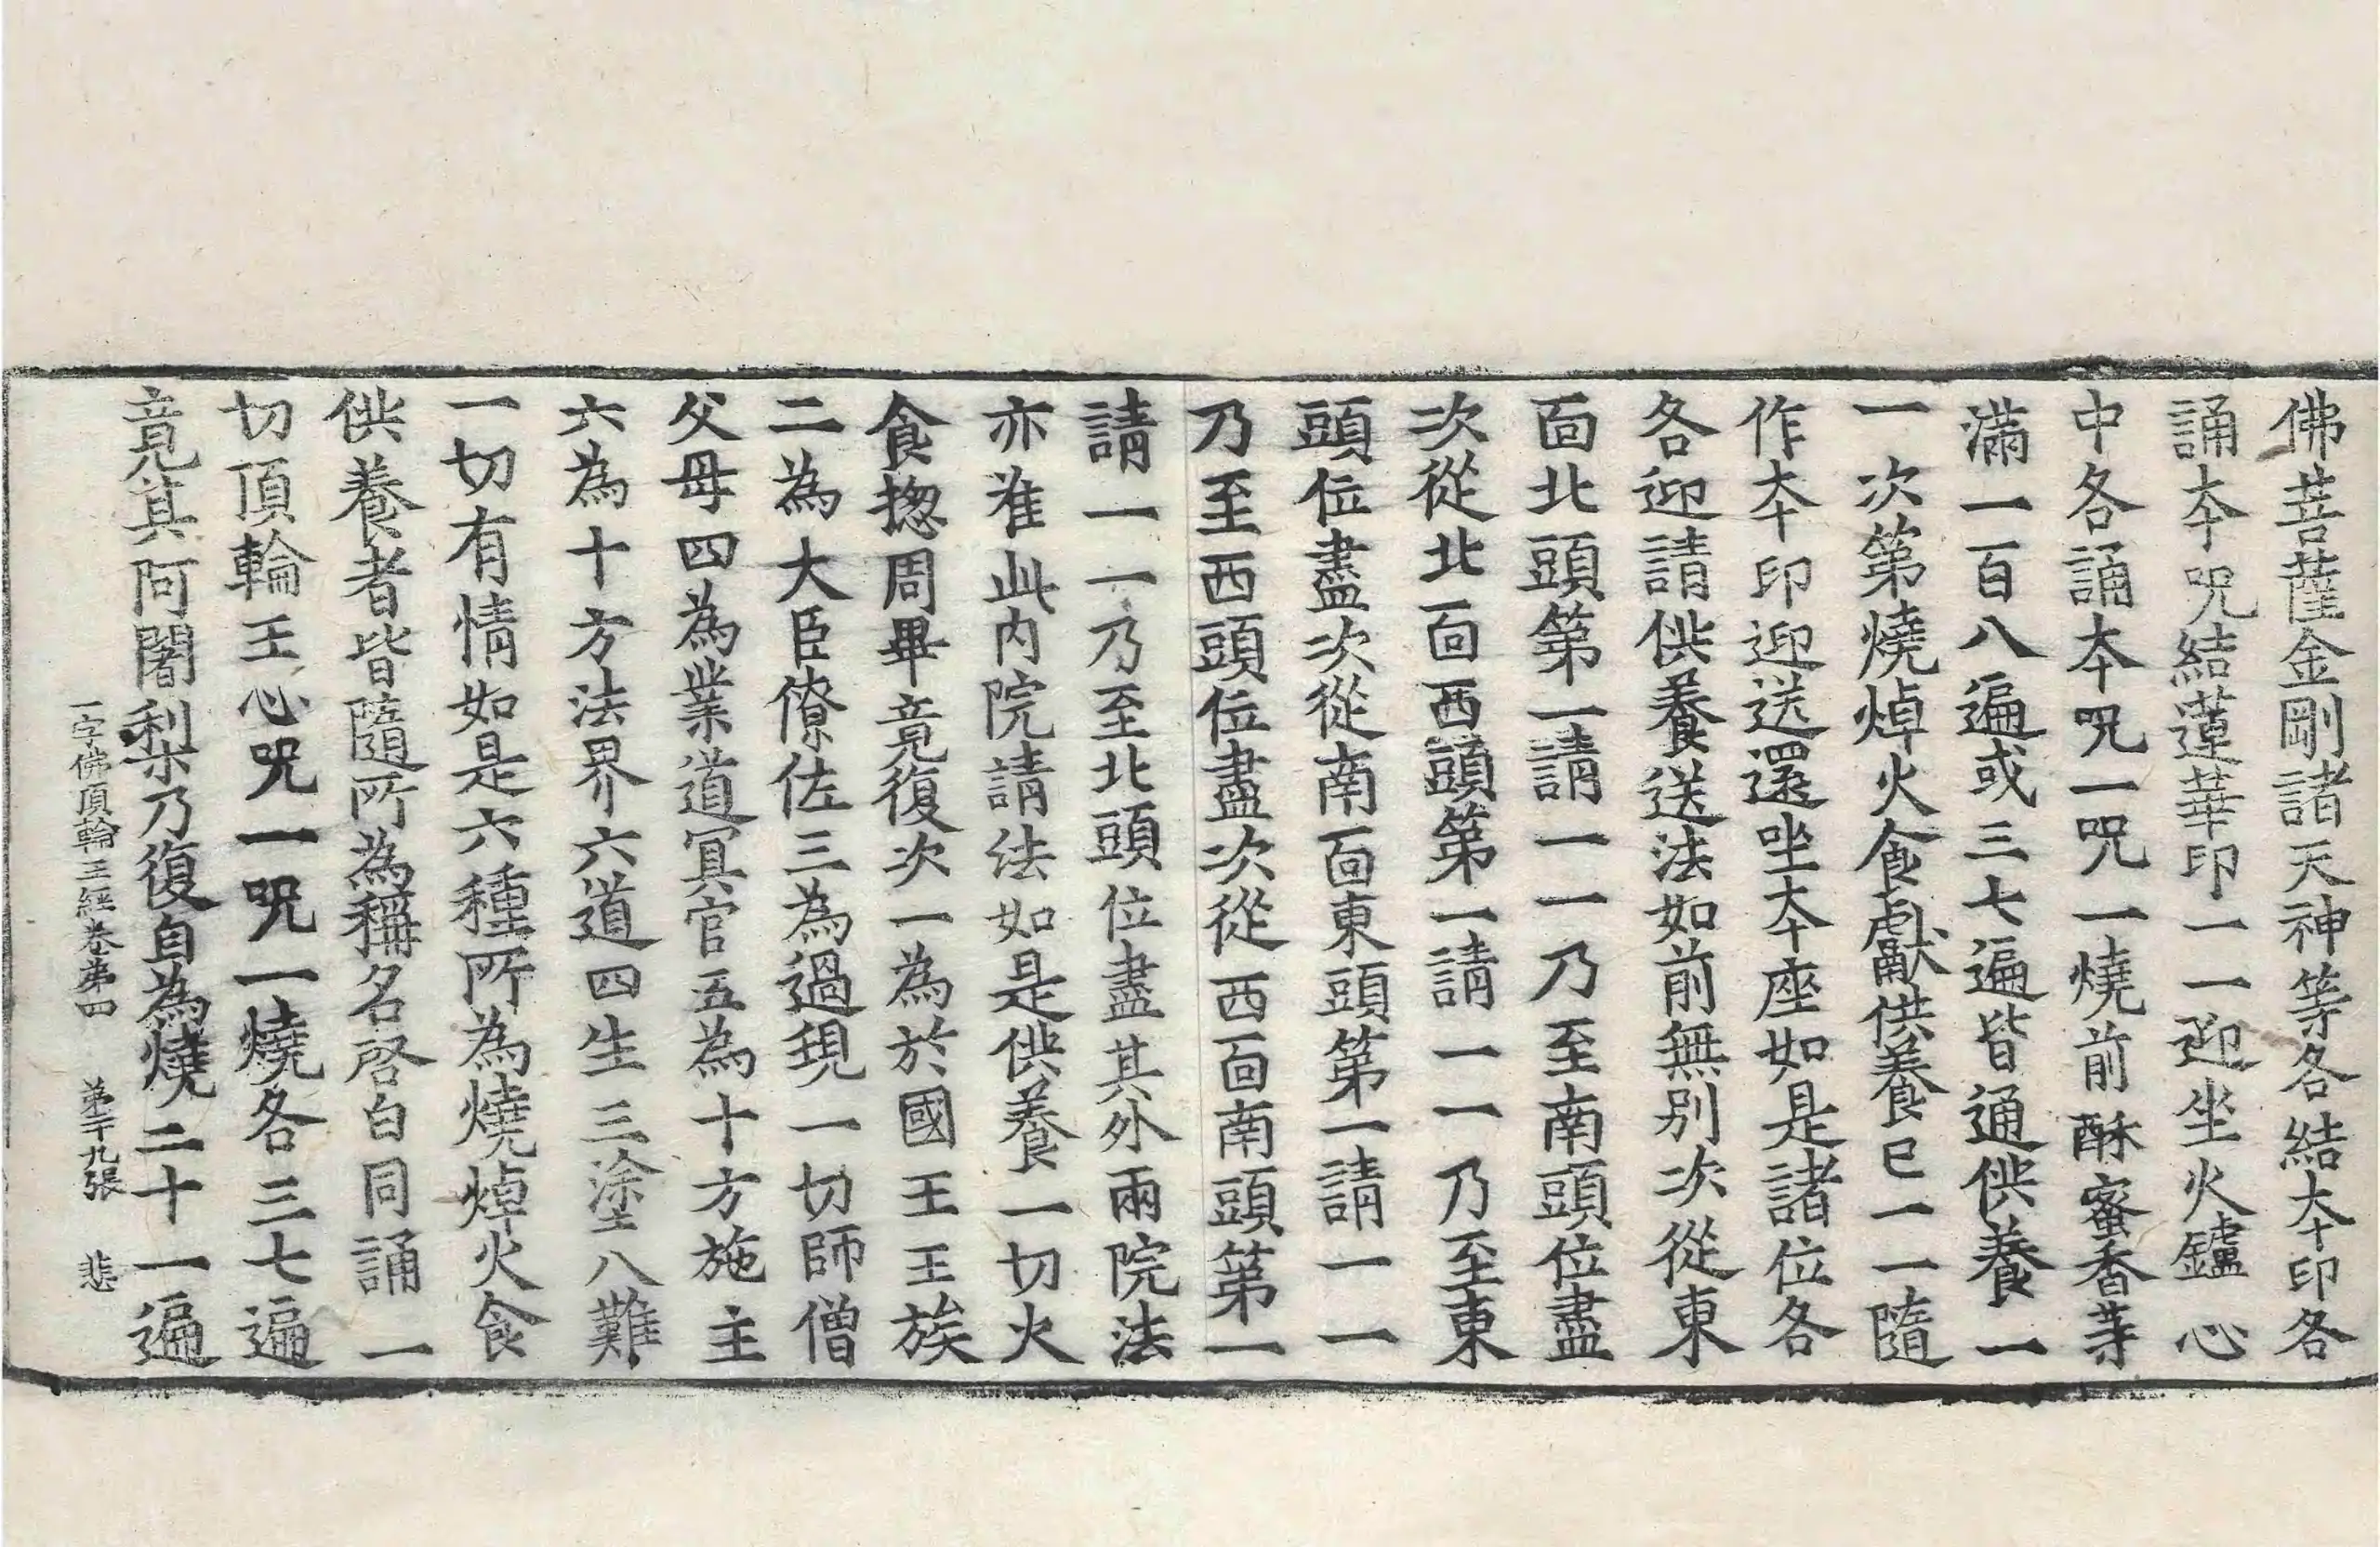 佛菩薩金剛諸天神等各結夲印各
誦夲呪結蓮華印一一迎坐火鑪心
中各誦夲呪一呪一燒前酥蜜香䓁
滿一百八遍或三七遍皆通供養一
一次第燒焯火食獻供養已一一隨
作夲印迎送還坐夲座如是諸位各
各迎請供養送法如前無別次從東
面北頭第一請一一乃至南頭位盡
次從北面西頭第一請一一乃至東
頭位盡次從南面東頭第一請一一
乃至西頭位盡次從西面南頭第一
請一一乃至北頭位盡其外兩院法
亦准此内院請法如是供養一切火
食揔周畢竟復次一為於國王王族
二為大臣僚佐三為過現一切師僧
父母四為業道冥官五為十方施主
六為十方法界六道四生三塗八難
一切有情如是六種所為燒焯火食
供養者皆隨所為稱名啓白同誦一
切頂輪王心呪一呪一燒各三七遍
竟其阿闍梨乃復自為燒二十一遍
一字佛頂輪王經卷苐四　苐二十九張　悲